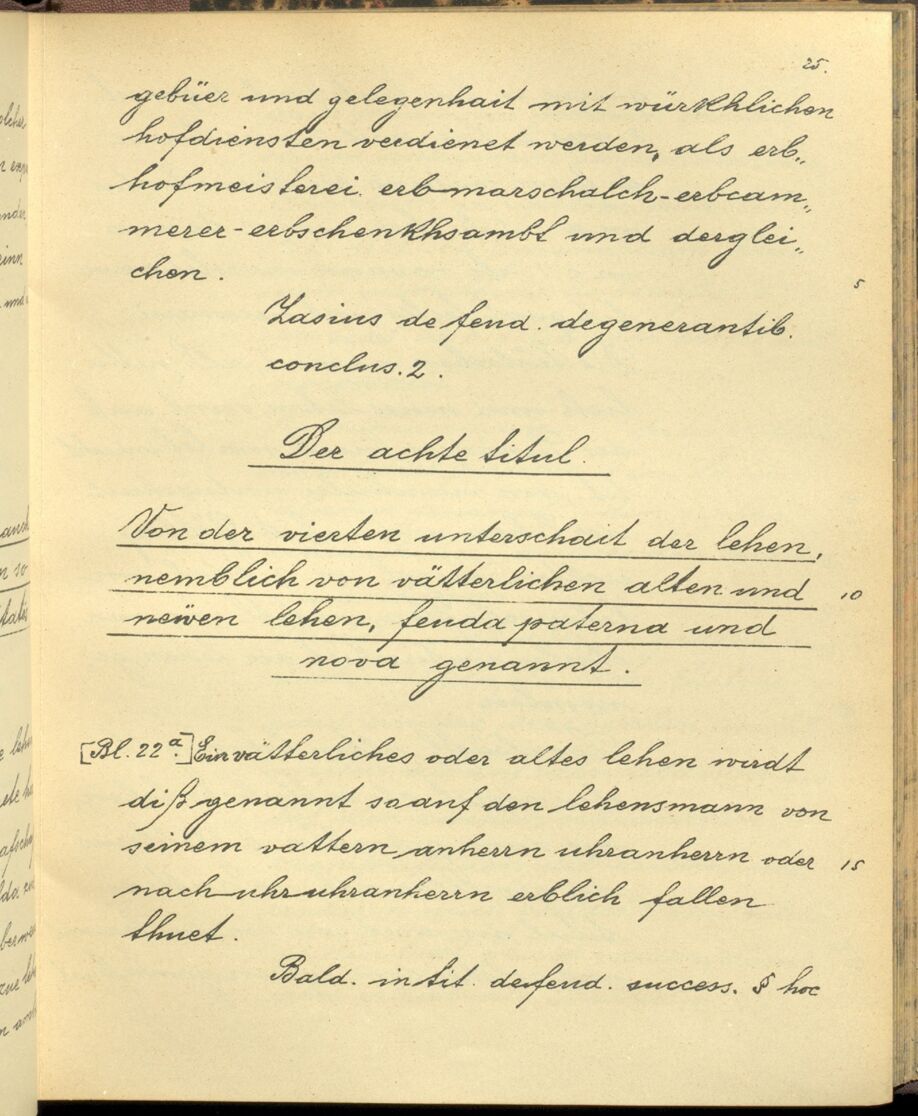 25.
gebüer und gelegenhait mit würkhlichen
hofdiensten verdienet werden, als erb„
hofmeisterei erbmarschalch-erbcam„
merer-erbschenkhsambt und derglei„
chen.
5
Zasius de feud. degenerantib.
conclus. 2.
Der achte titul.
Von der vierten unterschait der lehen,
nemblich von vätterlichen alten und
10
neüwen lehen, feuda paterna und
nova genannt.
[Bl. 22a.] Ein vätterliches oder altes lehen wirdt
diß genannt so auf den lehensmann von
seinem vattern anherrn uhranherrn oder
15
nach uhruhranherrn erblich fallen
thuet.
Bald. in tit. de feud. success. § hoc